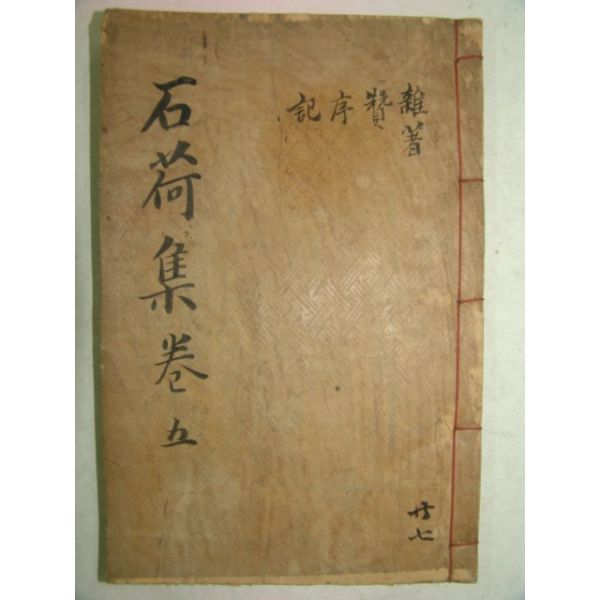 石荷集卷五
雜著
贊
序
記
廿七